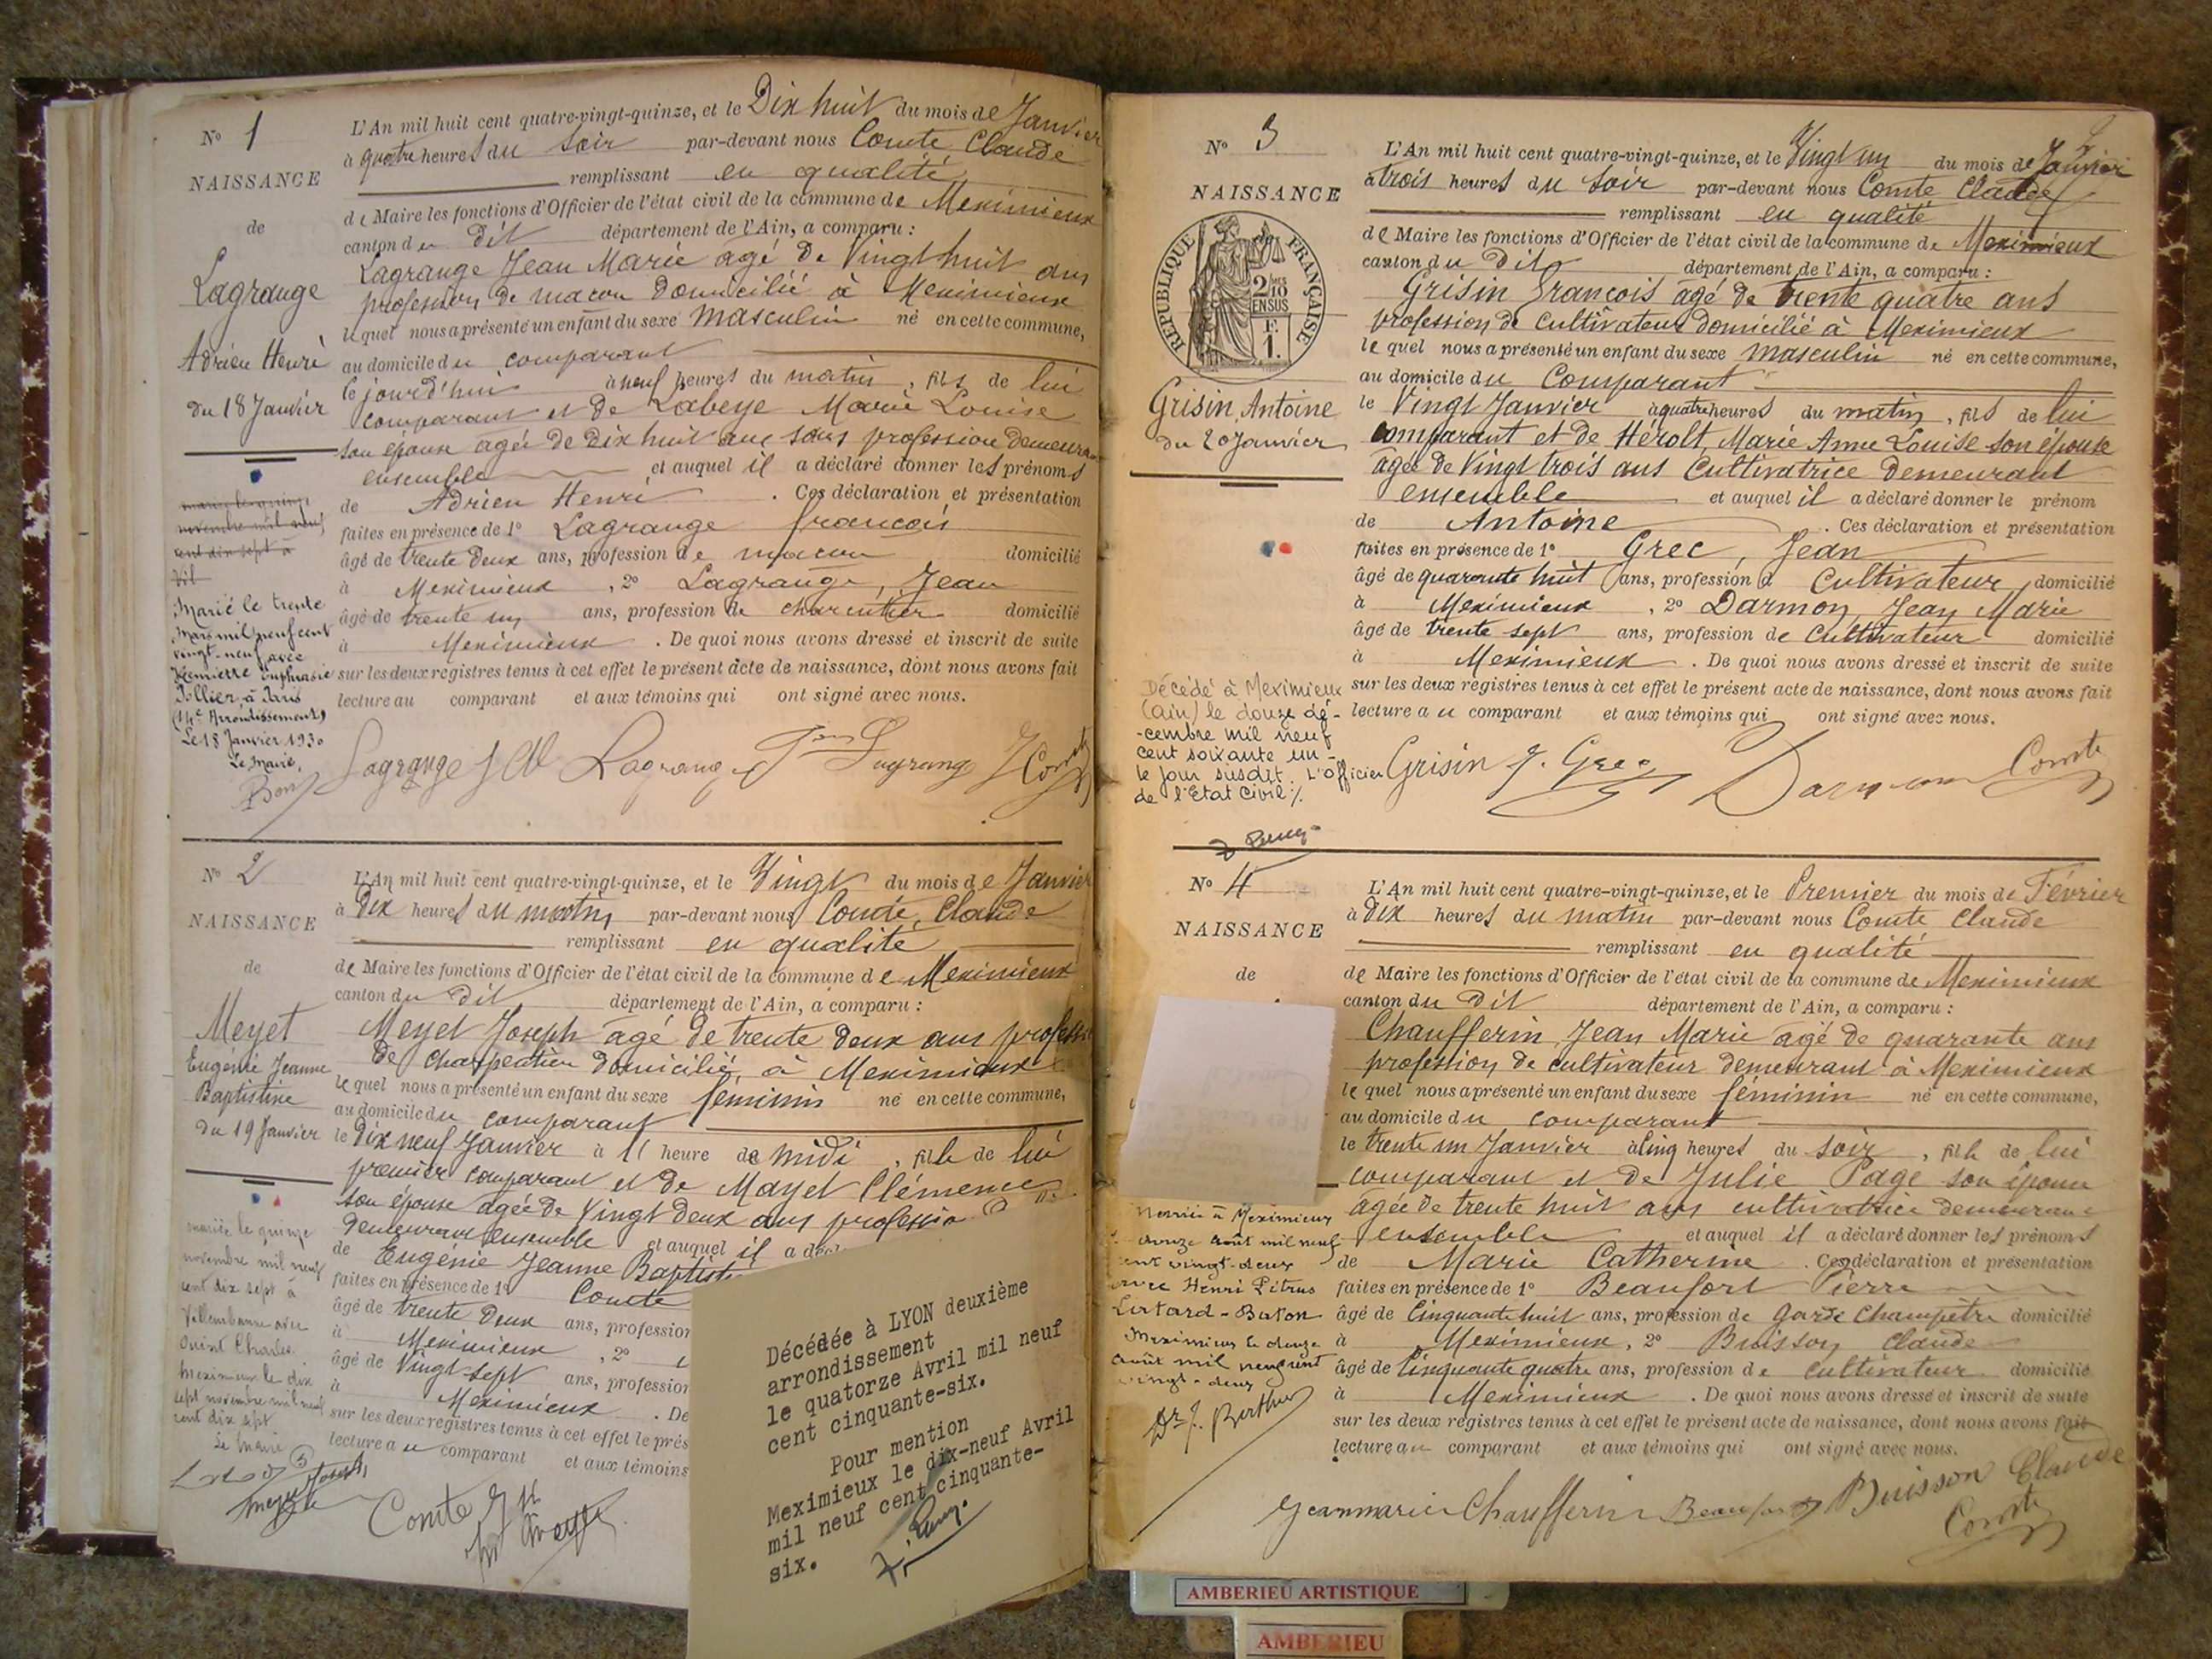 N° 1
NAISSANCE
de
Lagrange
Adrien Henri
du 18 Janvier
marié le quinze
novembre mil neuf
cent dix sept à
Vil
Marié le trente
Mars mil neuf cent
vingt-neuf avec
Henriette Euphrasie
Tollier, à Paris
(14e Arrondissement)
Le 18 Janvier 1930
Le Maire,
L'An mil huit cent quatre-vingt-quinze, et le Dix huit du mois de Janvier
à quatre heures du soir par-devant nous Comte Claude
remplissant en qualité
de Maire les fonctions d'Officier de l'état civil de la commune de Meximieux
canton du dit département de l'Ain, a comparu :
Lagrange Jean Marie agé de Vingt huit ans
profession de macon domicilié à Meximieux
lequel nous a présenté un enfant du sexe masculin né en cette commune,
au domicile du comparant
le jourd'hui à neuf heures du matin, fils de lui
comparant et de Labeye Marie Louise
son épouse agée de Dix huit ans sans profession demeurant
ensemble et auquel il a déclaré donner les prénoms
de Adrien Henri . Ces déclaration et présentation
faites en présence de 1° Lagrange francois
âgé de trente deux ans, profession de macon domicilié
à Meximieux , 2° Lagrange, Jean
âgé de trente un ans, profession de charentier domicilié
à Meximieux . De quoi nous avons dressé et inscrit de suite
sur les deux registres tenus à cet effet le présent acte de naissance, dont nous avons fait
lecture au comparant et aux témoins qui ont signé avec nous.
Lagrange J M Lagrange Jean Lagrange Comte
N° 2
NAISSANCE
de
Meyet
Eugénie Jeanne
Baptistine
du 19 Janvier
mariée le quinze
novembre mil neuf
cent dix sept à
Villeurbanne avec
Charles
Meximieux le dix
sept novembre mil neuf
cent dix sept
Le Maire
L'An mil huit cent quatre-vingt-quinze, et le Vingt du mois de Janvier
à Dix heures du matin par-devant nous Comte, Claude
remplissant en qualité
de Maire les fonctions d'Officier de l'état civil de la commune de Meximieux
canton du dit département de l'Ain, a comparu :
Meyet Joseph agé de trente deux ans profession
de Charpentier domicilié, à Meximieux
lequel nous a présenté un enfant du sexe féminin né en cette commune,
au domicile du comparant
le dix neuf Janvier à 11 heure de midi , fille de lui
premier comparant et de Mayet Clémence
son épouse agée de Vingt deux ans profession
demeurant ensemble et auquel il a décl
de Eugénie Jeanne Baptisti
faites en présence de 1° Comte
âgé de trente deux ans, profession
à Meximieux , 2°
âgé de Vingt-sept ans, profession
à Meximieux . De
sur les deux registres tenus à cet effet le prés
lecture au comparant et aux témoins
Comte
Décédée à LYON deuxième
arrondissement
le quatorze Avril mil neuf
cent cinquante-six.
Pour mention
Meximieux le dix-neuf Avril
mil neuf cent cinquante-
six.
N° 3
NAISSANCE
RÉPUBLIQUE FRANÇAISE
2/10
EN SUS
F.
1.
Grisin Antoine
du 20 Janvier
Décédé à Meximieux
(Ain) le douze dé-
-cembre mil neuf
cent soixante un -
le jour susdit. L'officier
de l'Etat Civil ./.
L'An mil huit cent quatre-vingt-quinze, et le Vingt un du mois de Janvier
à trois heures du soir par-devant nous Comte Claude
remplissant en qualité
de Maire les fonctions d'Officier de l'état civil de la commune de Meximieux
canton du dit département de l'Ain, a comparu :
Grisin Francois agé de trente quatre ans
profession de cultivateur domicilié à Meximieux
lequel nous a présenté un enfant du sexe masculin né en cette commune,
au domicile du Comparant
le Vingt Janvier à quatre heures du matin, fils de lui
comparant et de Hérolt, Marie Anne Louise son épouse
agée de Vingt trois ans Cultivatrice demeurant
ensemble et auquel il a déclaré donner le prénom
de Antoine . Ces déclaration et présentation
faites en présence de 1° Grec, Jean
âgé de quarante huit ans, profession d Cultivateur domicilié
à Meximieux , 2° Darmon, Jean Marie
âgé de trente sept ans, profession de Cultivateur domicilié
à Meximieux . De quoi nous avons dressé et inscrit de suite
sur les deux registres tenus à cet effet le présent acte de naissance, dont nous avons fait
lecture au comparant et aux témoins qui ont signé avec nous.
Grisin J. Grec Darmon Comte
N° 4
NAISSANCE
de
Mariée à Meximieux
douze août mil neuf
cent vingt-deux
avec Henri Pétrus
Lintard-Buton
Meximieux le douze
août mil neuf cent
vingt-deux
Dr J. Berthier
L'An mil huit cent quatre-vingt-quinze, et le Premier du mois de Février
à dix heures du matin par-devant nous Comte Claude
remplissant en qualité
de Maire les fonctions d'Officier de l'état civil de la commune de Meximieux
canton du dit département de l'Ain, a comparu :
Chaufferin Jean Marie agé de quarante ans
profession de cultivateur demeurant à Meximieux
lequel nous a présenté un enfant du sexe féminin né en cette commune,
au domicile du comparant
le trente un Janvier à cinq heures du soir , fille de lui
comparant et de Julie Page son épouse
agée de trente huit ans cultivatrice demeurant
ensemble et auquel il a déclaré donner les prénoms
de Marie Catherine . Ces déclaration et présentation
faites en présence de 1° Beaufort Pierre
âgé de Cinquante huit ans, profession de garde champêtre domicilié
à Meximieux, 2° Buisson Claude
âgé de Cinquante quatre ans, profession de cultivateur domicilié
à Meximieux . De quoi nous avons dressé et inscrit de suite
sur les deux registres tenus à cet effet le présent acte de naissance, dont nous avons fait
lecture au comparant et aux témoins qui ont signé avec nous.
Jeanmarie Chaufferin Beaufort Buisson Claude
Comte
AMBERIEU ARTISTIQUE
AMBERIEU